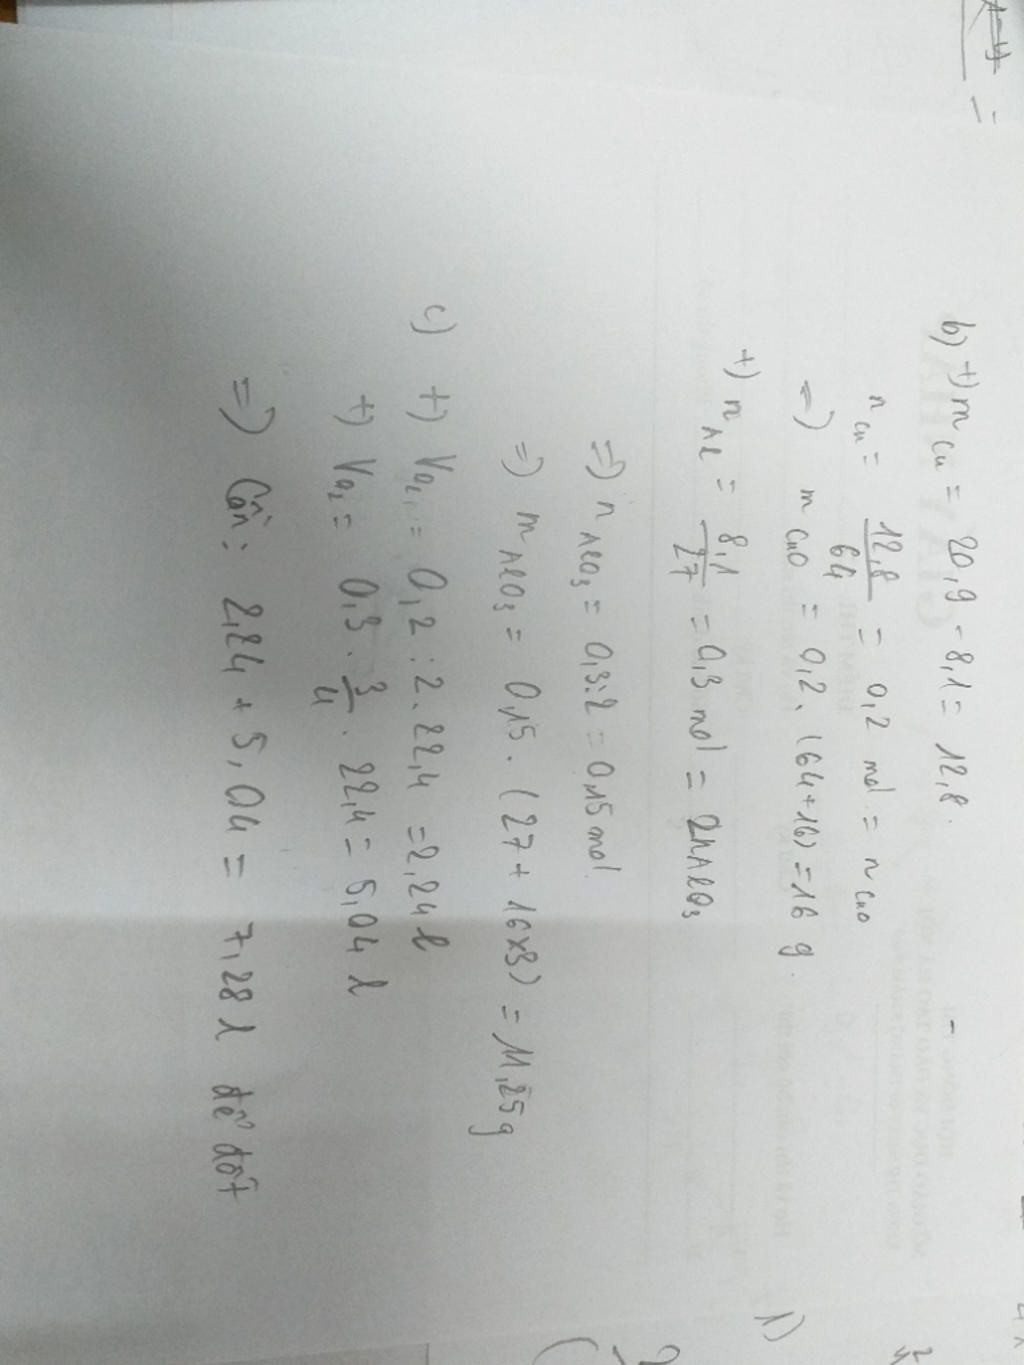 b) +) m Cu = 20,9 - 8,1 = 12,8.
n Cu = 12,8/64 = 0,2 mol = n CuO
=) m CuO = 0,2. (64+16) = 16 g.
+) n Al = 8,1/27 = 0,3 mol = 2n AlO3
=) n AlO3 = 0,3:2 = 0,15 mol
=) m AlO3 = 0,15. (27 + 16x3) = 11,25g
c) +) VO2 = 0,2 : 2. 22,4 = 2,24 l
+) VO2 = 0,3. 3/4. 22,4 = 5,04 l
=) Cần: 2,24 + 5,04 = 7,28 l để đốt
1)